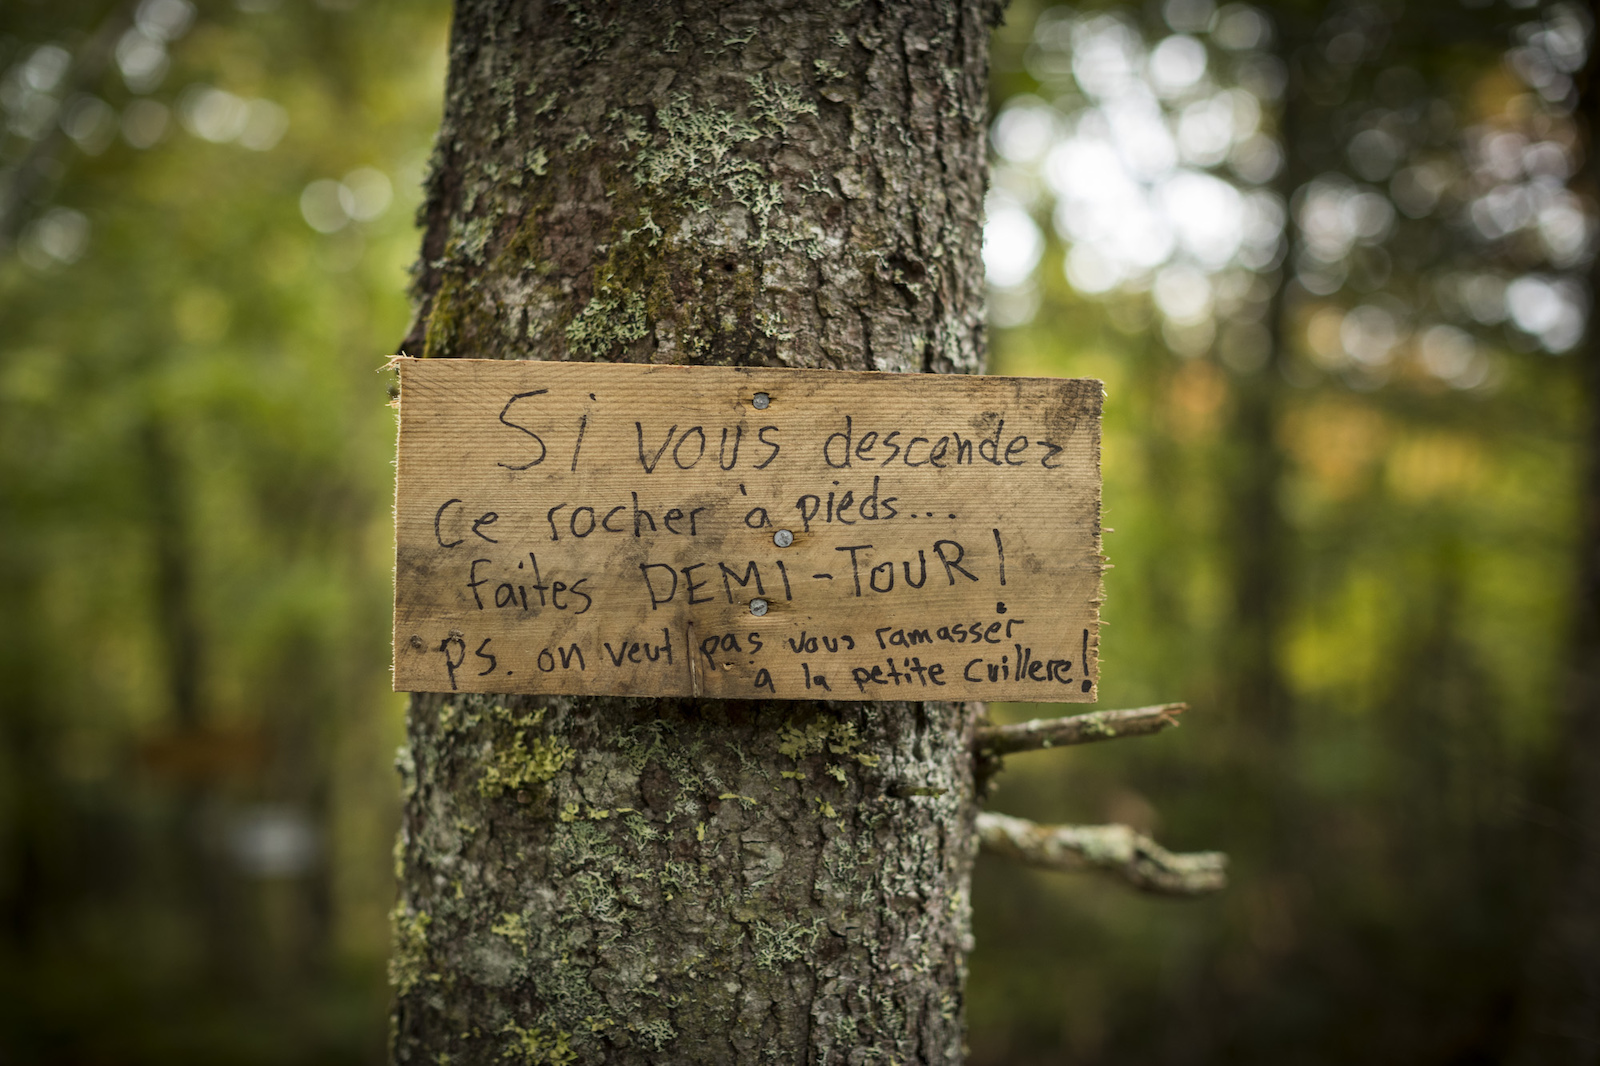 Si vous descendez
Ce rocher à pieds...
faites DEMI-TOUR!
ps. on veut pas vous ramasser
à la petite cuillere!